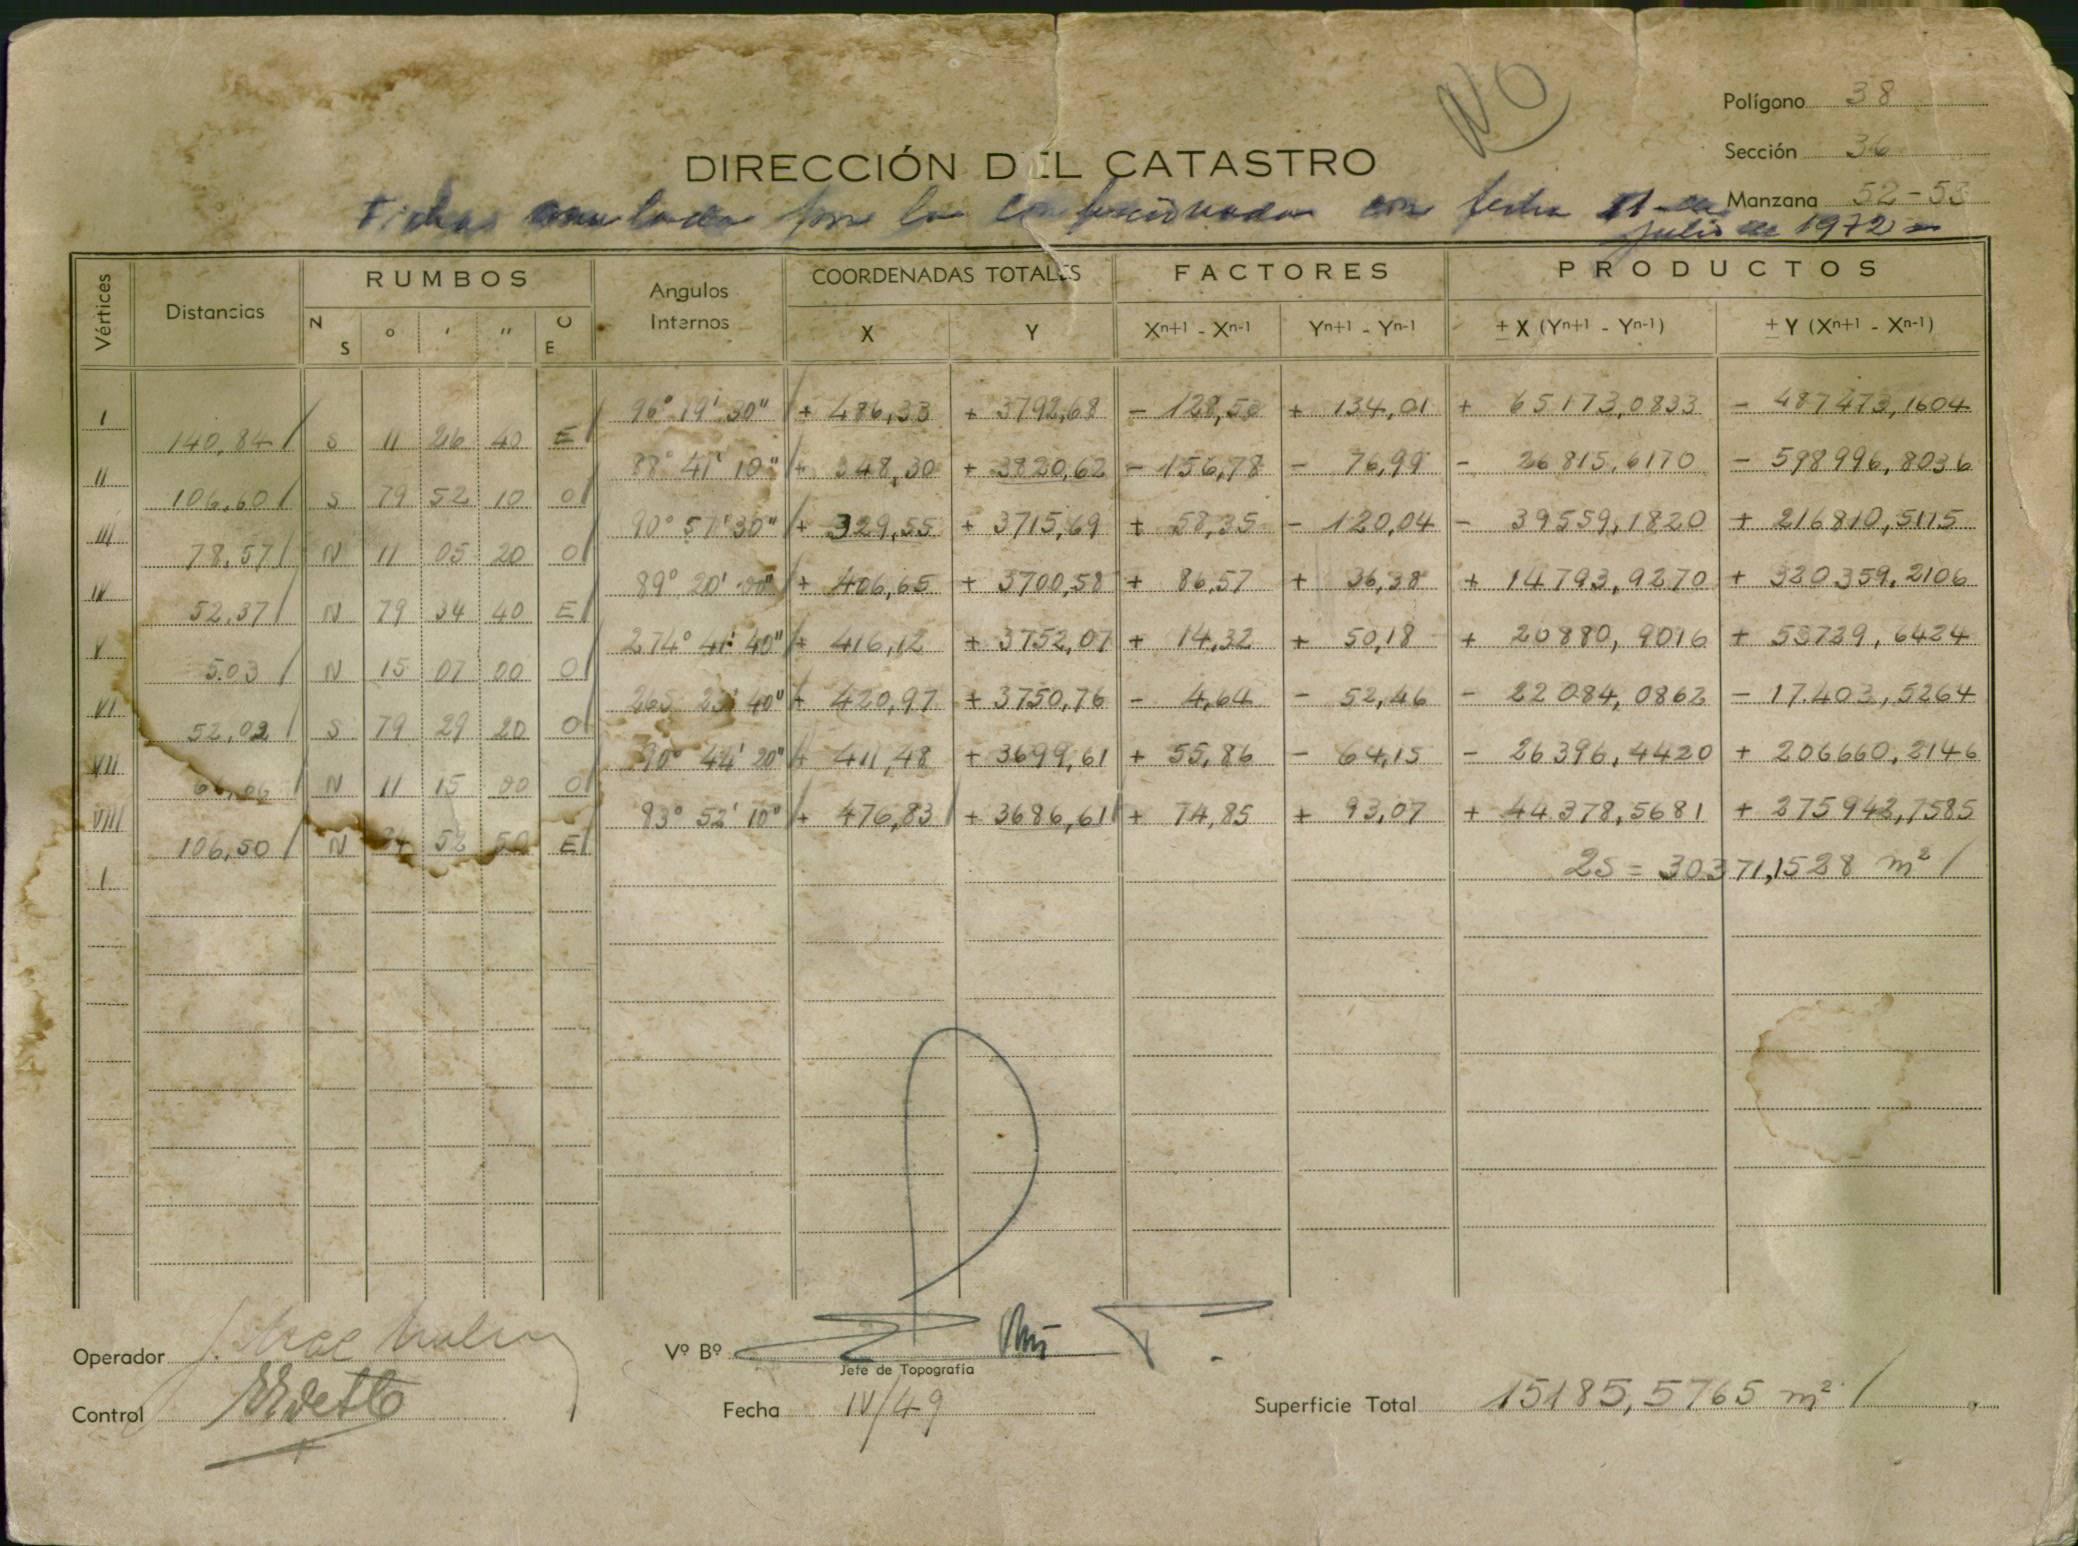 NO
Polígono 38
Sección 36
DIRECCIÓN DEL CATASTRO
Manzana 52-53
Fichas anuladas por las confeccionadas con fecha 11 de
julio de 1972
Vértices Distancias RUMBOS Angulos Internos COORDENADAS TOTALES FACTORES PRODUCTOS
N S ° ' " O E X Y Xn+1 - Xn-1 Yn+1 - Yn-1 ± X (Yn+1 - Yn-1) ± Y (Xn+1 - Xn-1)
I 96° 19' 30" + 486,33 + 3792,68 - 128,53 + 134,01 + 65173,0833 - 487473,1604
140,84 S 11 26 40 E
II 88° 41' 10" + 348,30 + 3820,62 - 156,78 - 76,99 - 26815,6170 - 598996,8036
106,60 S 79 52 10 O
III 90° 57' 30" + 329,55 + 3715,69 + 58,35 - 120,04 - 39559,1820 + 216810,5115
78,57 N 11 05 20 O
IV 89° 20' 00" + 406,65 + 3700,58 + 86,57 + 36,38 + 14793,9270 + 320359,2106
52,37 N 79 34 40 E
V 274° 41' 40" + 416,12 + 3752,07 + 14,32 + 50,18 + 20880,9016 + 53729,6424
5.03 N 15 07 00 O
VI 265 23' 40" + 420,97 + 3750,76 - 4,64 - 52,46 - 22084,0862 - 17.403,5264
52,02 S 79 29 20 O
VII 90° 44' 20" + 411,48 + 3699,61 + 55,86 - 64,15 - 26396,4420 + 206660,2146
66,66 N 11 15 00 O
VIII 93° 52' 10" + 476,83 + 3686,61 + 74,85 + 93,07 + 44378,5681 + 275942,7585
106,50 N 52 50 E
2S = 30371,1528 m²
I
Operador
Vº Bº
Jefe de Topografía
Control
Fecha IV/49
Superficie Total 15185,5765 m²